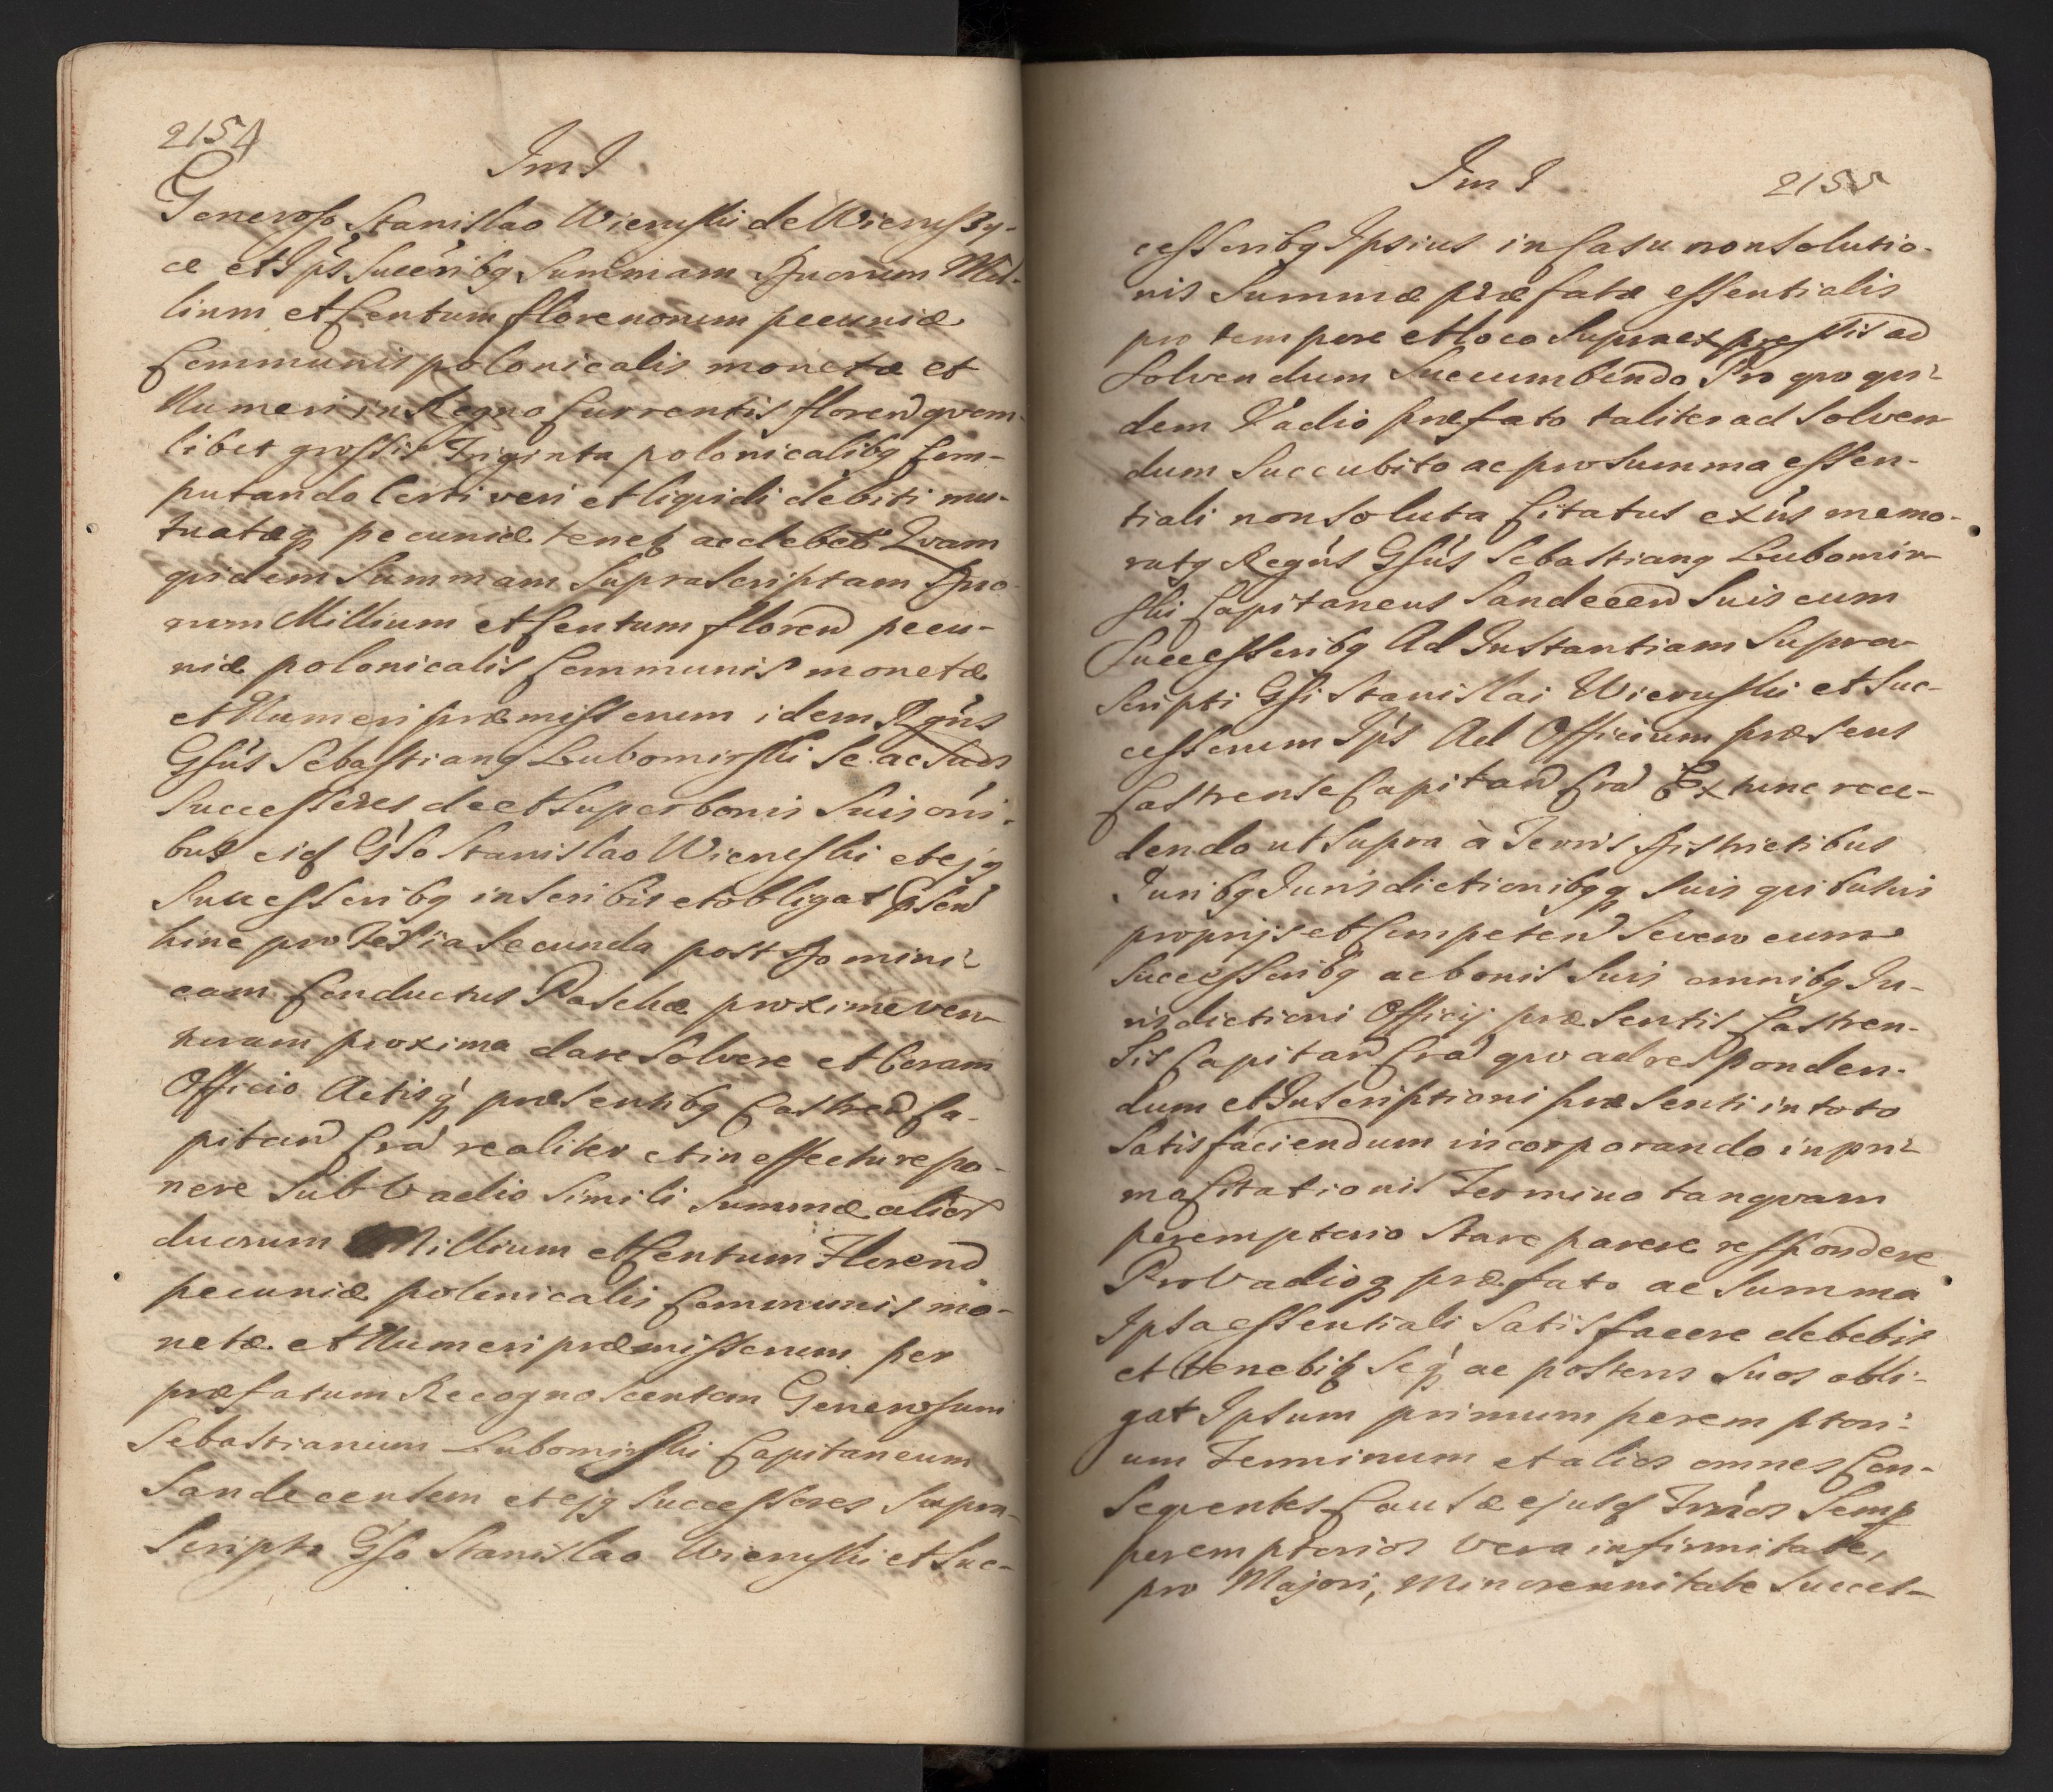 2154
Im I
Generoso Stanislao Wierusski de Wieruszy-
ce et Ipś Succeribq Summam Duorum Mil-
lium et Centum florenorum pecuniæ
Communis polonicalis moneta et
Numeri in Regno Currentis floren qvem-
libet grossis Triginta polonicalibq Com-
putando Certi veri et liqvidi debiti mu-
tuatæq pecuniæ tenet ac debet Qvam
qvidem Summam Supra Scriptam Duo-
rum Millium et Centum floren pecu-
niæ polonicalis Communis monetæ
et Numeri præmissorum idem Rgńs
Gsús Sebastianq Lubomirski Se ac Suos
Successores de et Super bonis Suis oni-
bus eid Gśo Stanislao Wierusski et ejq
Successoribq inscribit et obligat Psen
hinc pro Feria Secunda post Domini-
cam Conductus Paschæ proxime ven-
turam proxima dare Solvere et Coram
Officio Actisq præsentibq Castren Ca-
pitan Cra realiter et in effectu repo-
nere Sub Vadio Simili Summæ alior
duorum Millium et Centum Floren
pecuniæ polonicalis Communis mo-
netæ et Numeri præmissorum per
præfatum Recognoscentem Generosum
Sebastianum Lubomirski Capitaneum
Sandecensem et ejq Successores Supra-
Scripto Gso Stanislao Wierusski et Suc-
Im I
2155
cessoribq Ipsius in Casu non Solutio-
nis Summæ præfatæ essentialis
pro tempore et loco Supra expressis ad
Solvendum Succumbendo Pro qvo qvi-
dem Vadio præfato taliter ad Solven-
dum Succubito ac pro Summa essen-
tiali non Soluta Citatus exńs memo-
ratq Regńs Gsús Sebastianq Lubomir-
ski Capitaneus Sandecen Suis cum
Successoribq Ad Instantiam Supra-
Scripti Gsi Stanislai Wierusski et Suc-
cessorum Ipś Ad Officium præsens
Castrense Capitan Cra Ex tunc rece-
dendo ut Supra à Terris Districtibus
Juribq Jurisdictionibqq Suis qvibusvis
proprijs et Competen Seveno cum
Successoribq ac bonis Suis omnibq Ju-
risdictioni Officij præsentis Castren-
sis Capitan Cra qvo ad responden-
dum et Inscriptioni præsenti in toto
Satisfaciendum incorporando in pri-
ma Citationis Termino tanqvam
peremptorio Stare parere respondere
Pro Vadioq præfato ac Summa
Ipsa essentiali Satisfacere debebit
et tenebit Seq ac posteros Suos obli-
gat Ipsum primum perempton-
um Terminum et alios omnes Con-
seqventes Causæ ejusd Tmńos Semp
peremptorios Vera infirmitate,
pro Majori, Minorennitate Succes-